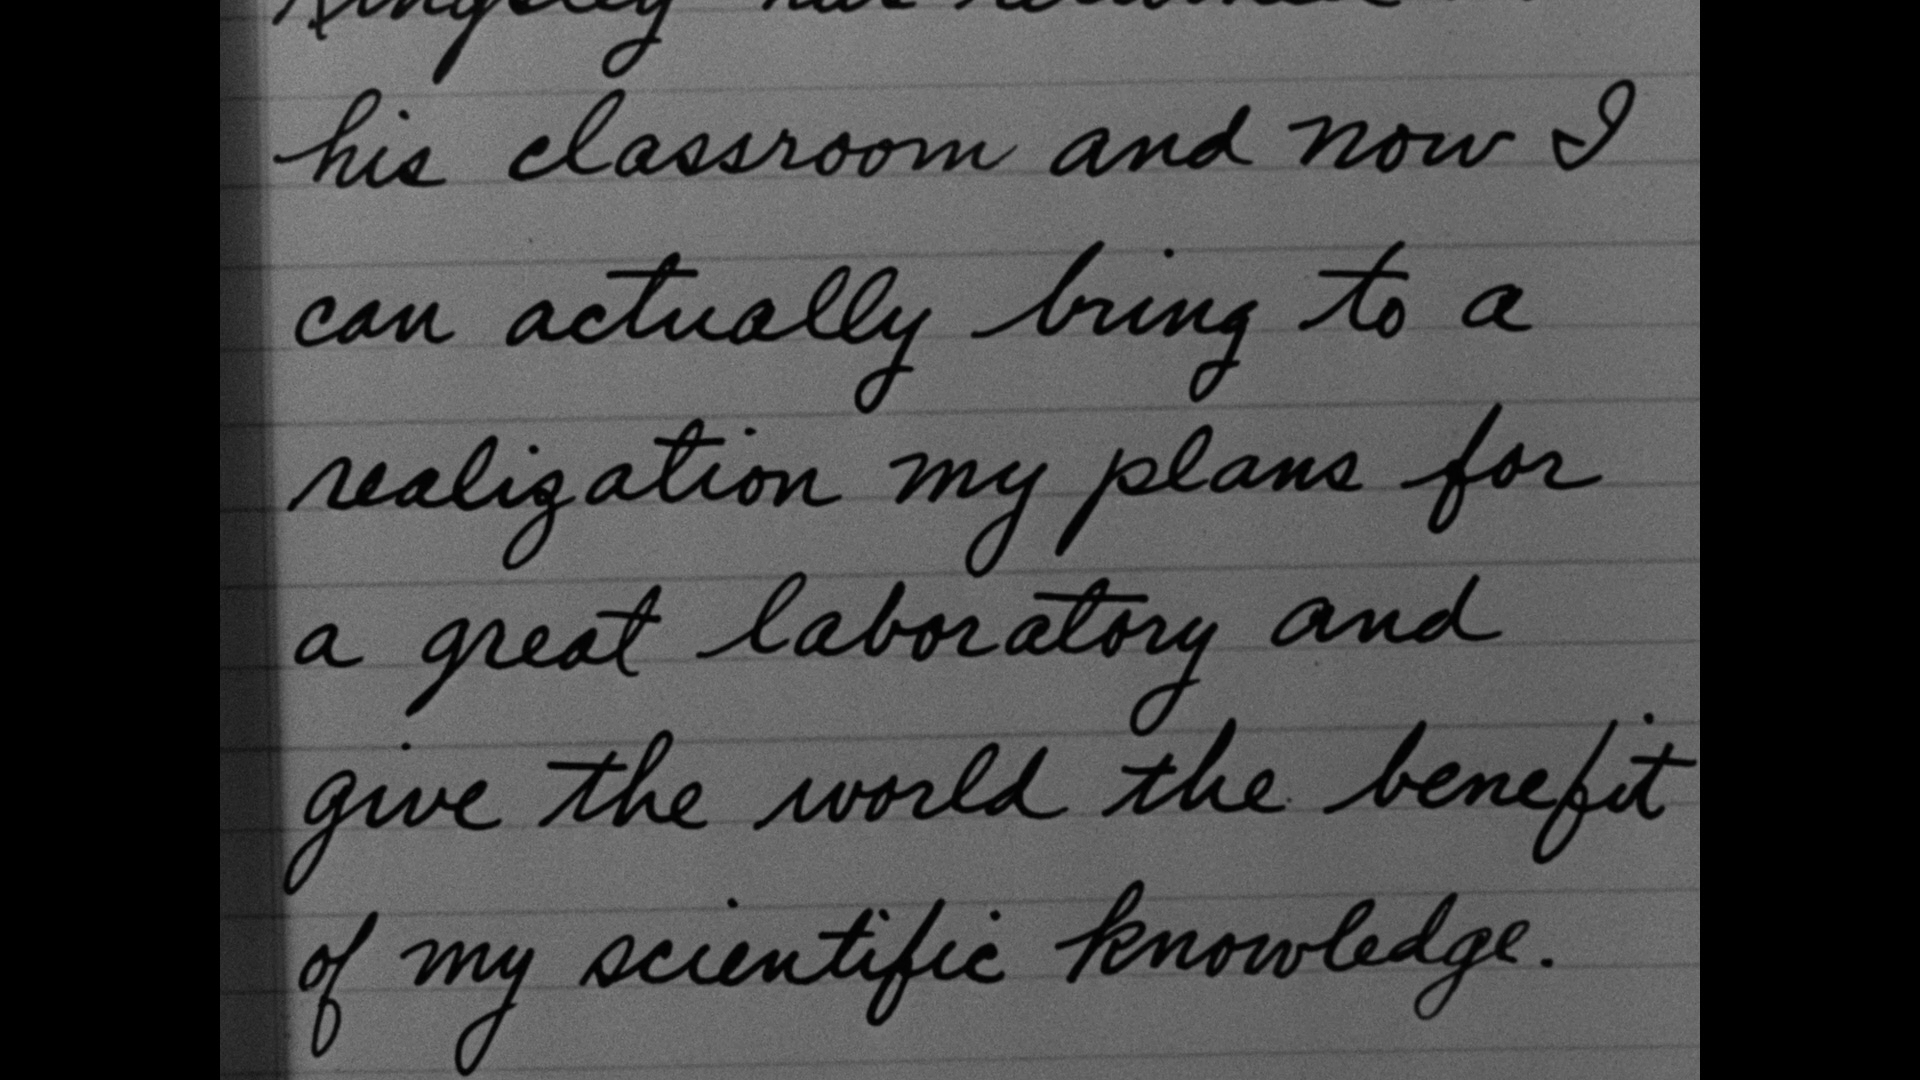 Kingsley has
his classroom and now I
can actually bring to a
realization my plans for
a great laboratory and
give the world the benefit
of my scientific knowledge.